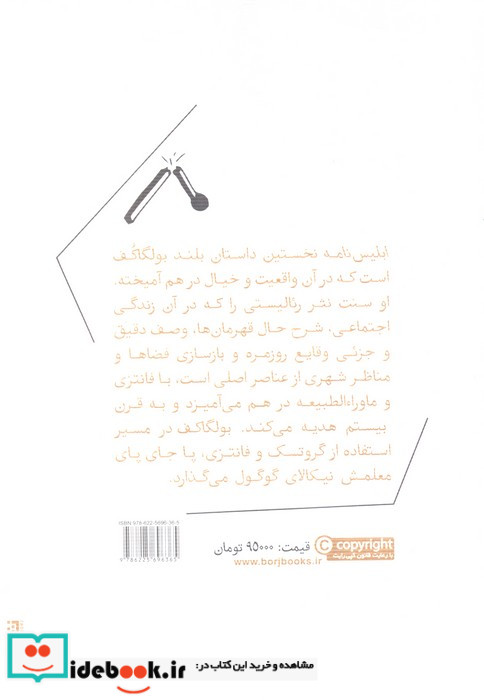 ابلیس‌نامه نخستین داستان بلند بولگاکُف
است که در آن واقعیت و خیال در هم آمیخته.
او سنت نثر رئالیستی را که در آن زندگی
اجتماعی، شرح حال قهرمان‌ها، وصف دقیق
و جزئی وقایع روزمره و بازسازی فضاها و
مناظر شهری از عناصر اصلی است، با فانتزی
و ماوراءالطبیعه در هم می‌آمیزد و به قرن
بیستم هدیه می‌کند. بولگاکف در مسیر
استفاده از گروتسک و فانتزی، پا جای پای
معلمش نیکالای گوگول می‌گذارد.
قیمت: ۹۵۰۰۰ تومان
www.borjbooks.ir
copyright
با رعایت قانون کپی‌رایت
idebook.ir
مشاهده و خرید این کتاب در: